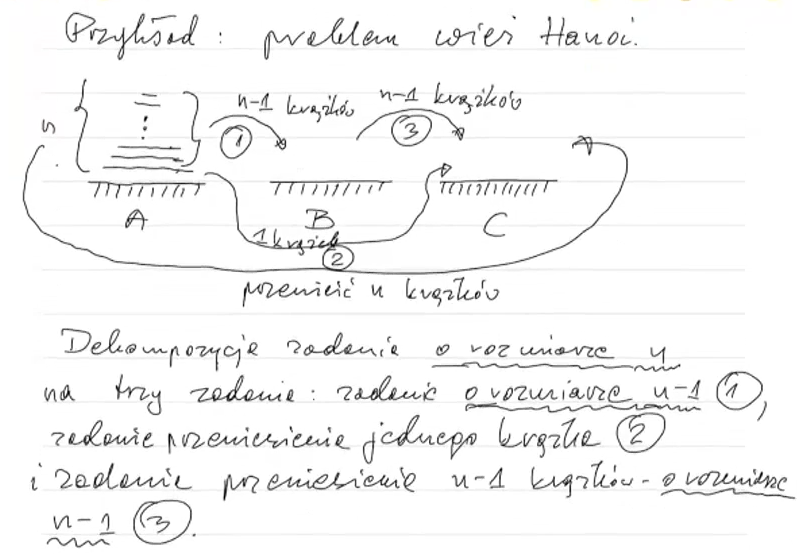 Przykład: problem wież Hanoi.
n-1 krążków n-1 krążków
n 1 3
A B C
1 krążek
2
przenieść n krążków
Dekompozycja zadania o rozmiarze n
na trzy zadania: zadanie o rozmiarze n-1 1,
zadanie przeniesienia jednego krążka 2
i zadanie przeniesienia n-1 krążków - o rozmiarze
n-1 3.